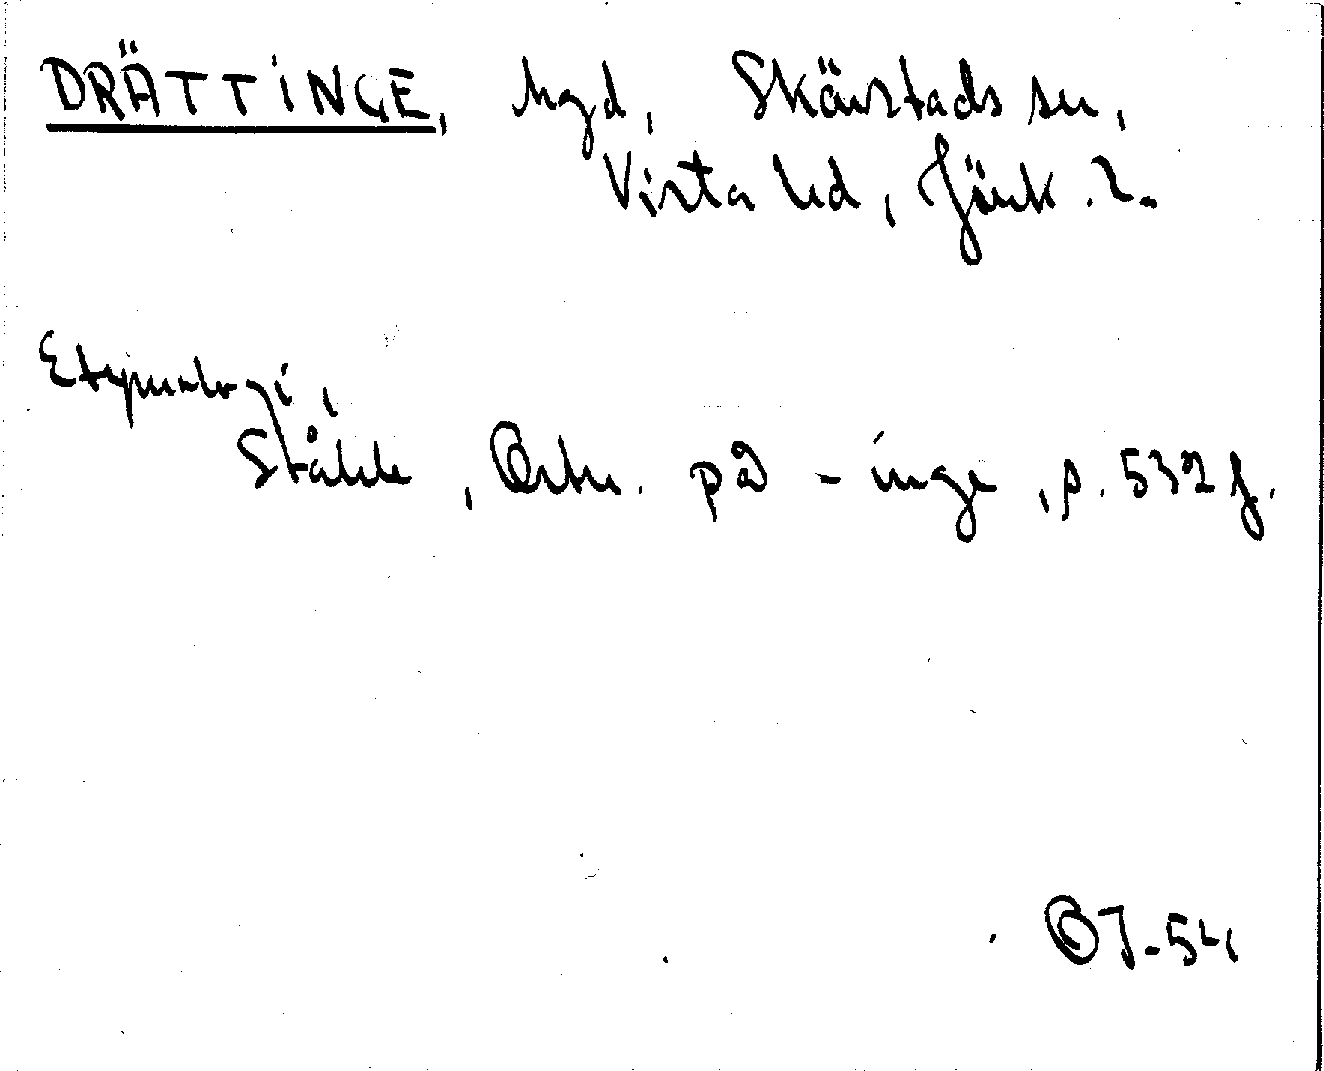 DRÄTTINGE, hgd, Skärstads sn,
Vista hd, Jönk. l.
Etymologi,
Ståhle, Ortn. på -inge, s. 532 f.
OJ-54